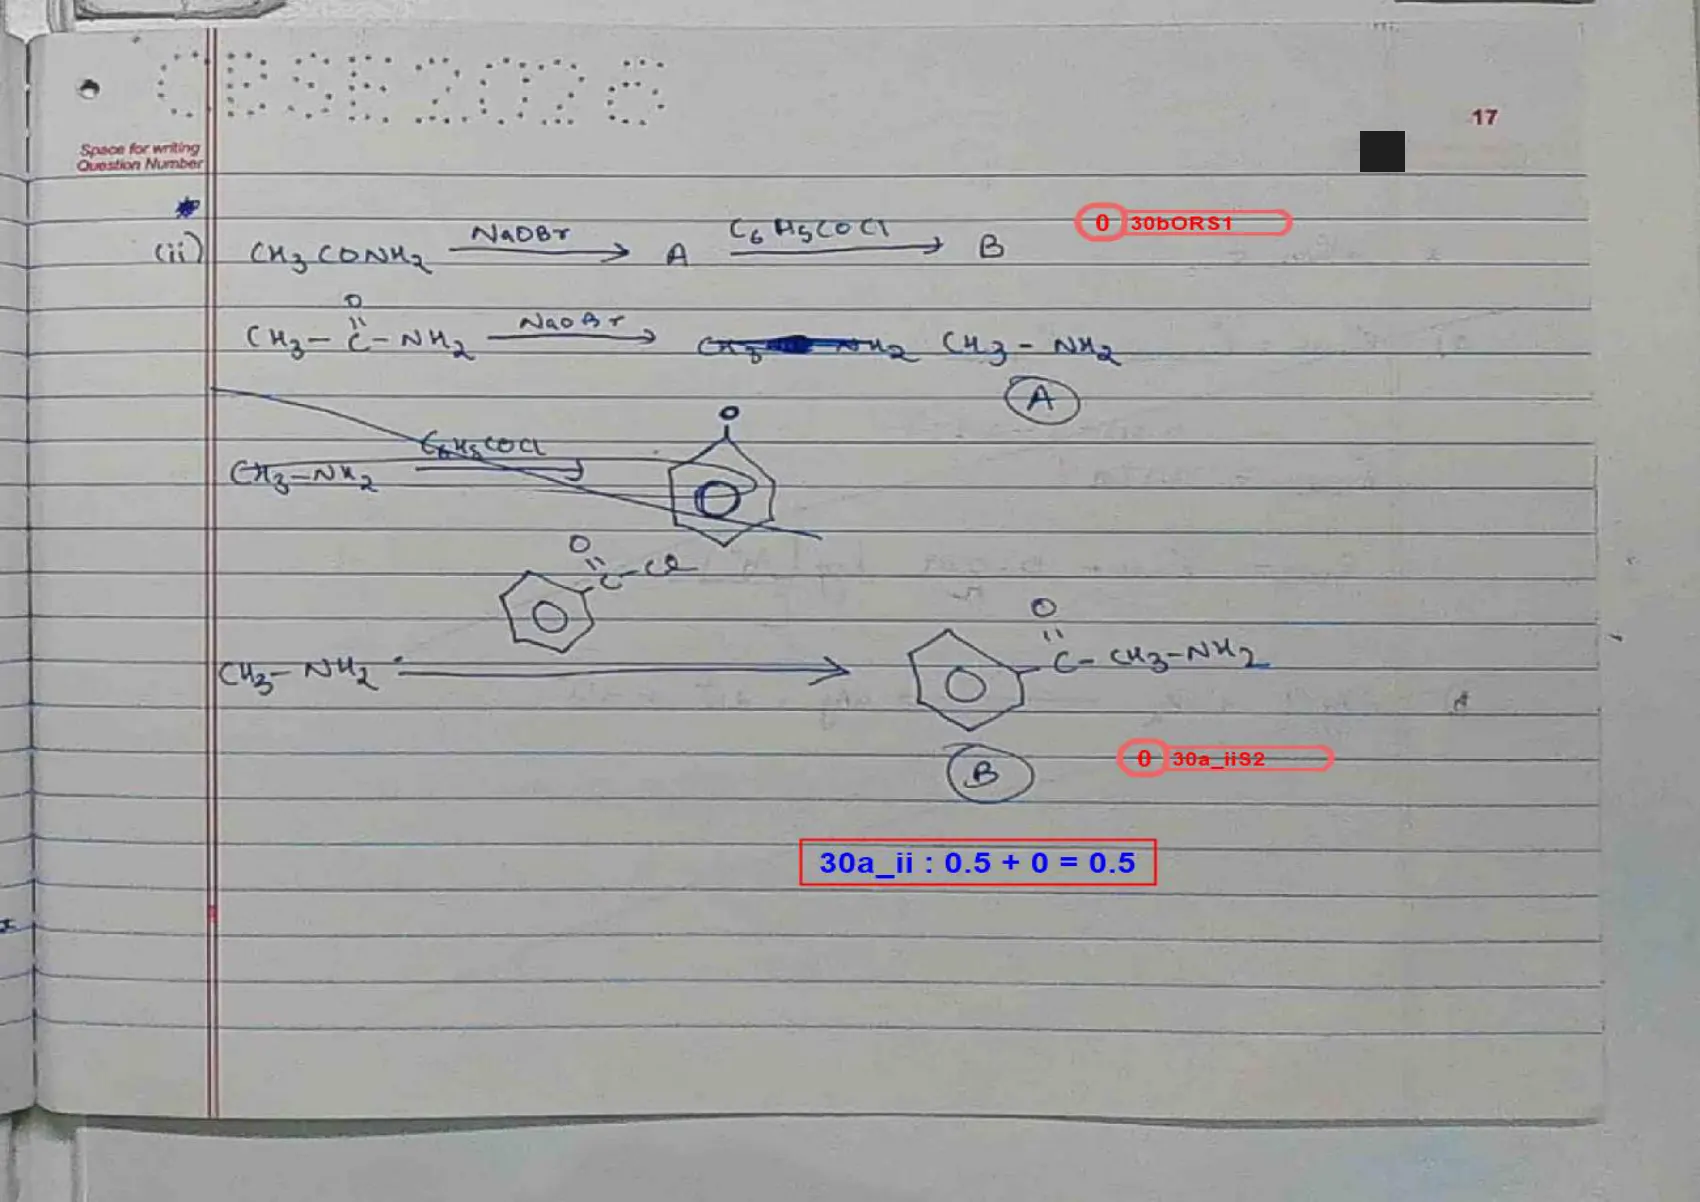 CBSE 2026
17
Space for writing
Question Number
0 30bORS1
(ii) CH3CONH2 NaOBr → A C6H5COCl → B
O
CH3 - C - NH2 NaOBr → CH3 NH2 CH3 - NH2
A
O
CH3-NH2 C6H5COCl →
O
C-Cl
O
CH3-NH2 → C- CH3-NH2
B
0 30a_iiS2
30a_ii : 0.5 + 0 = 0.5